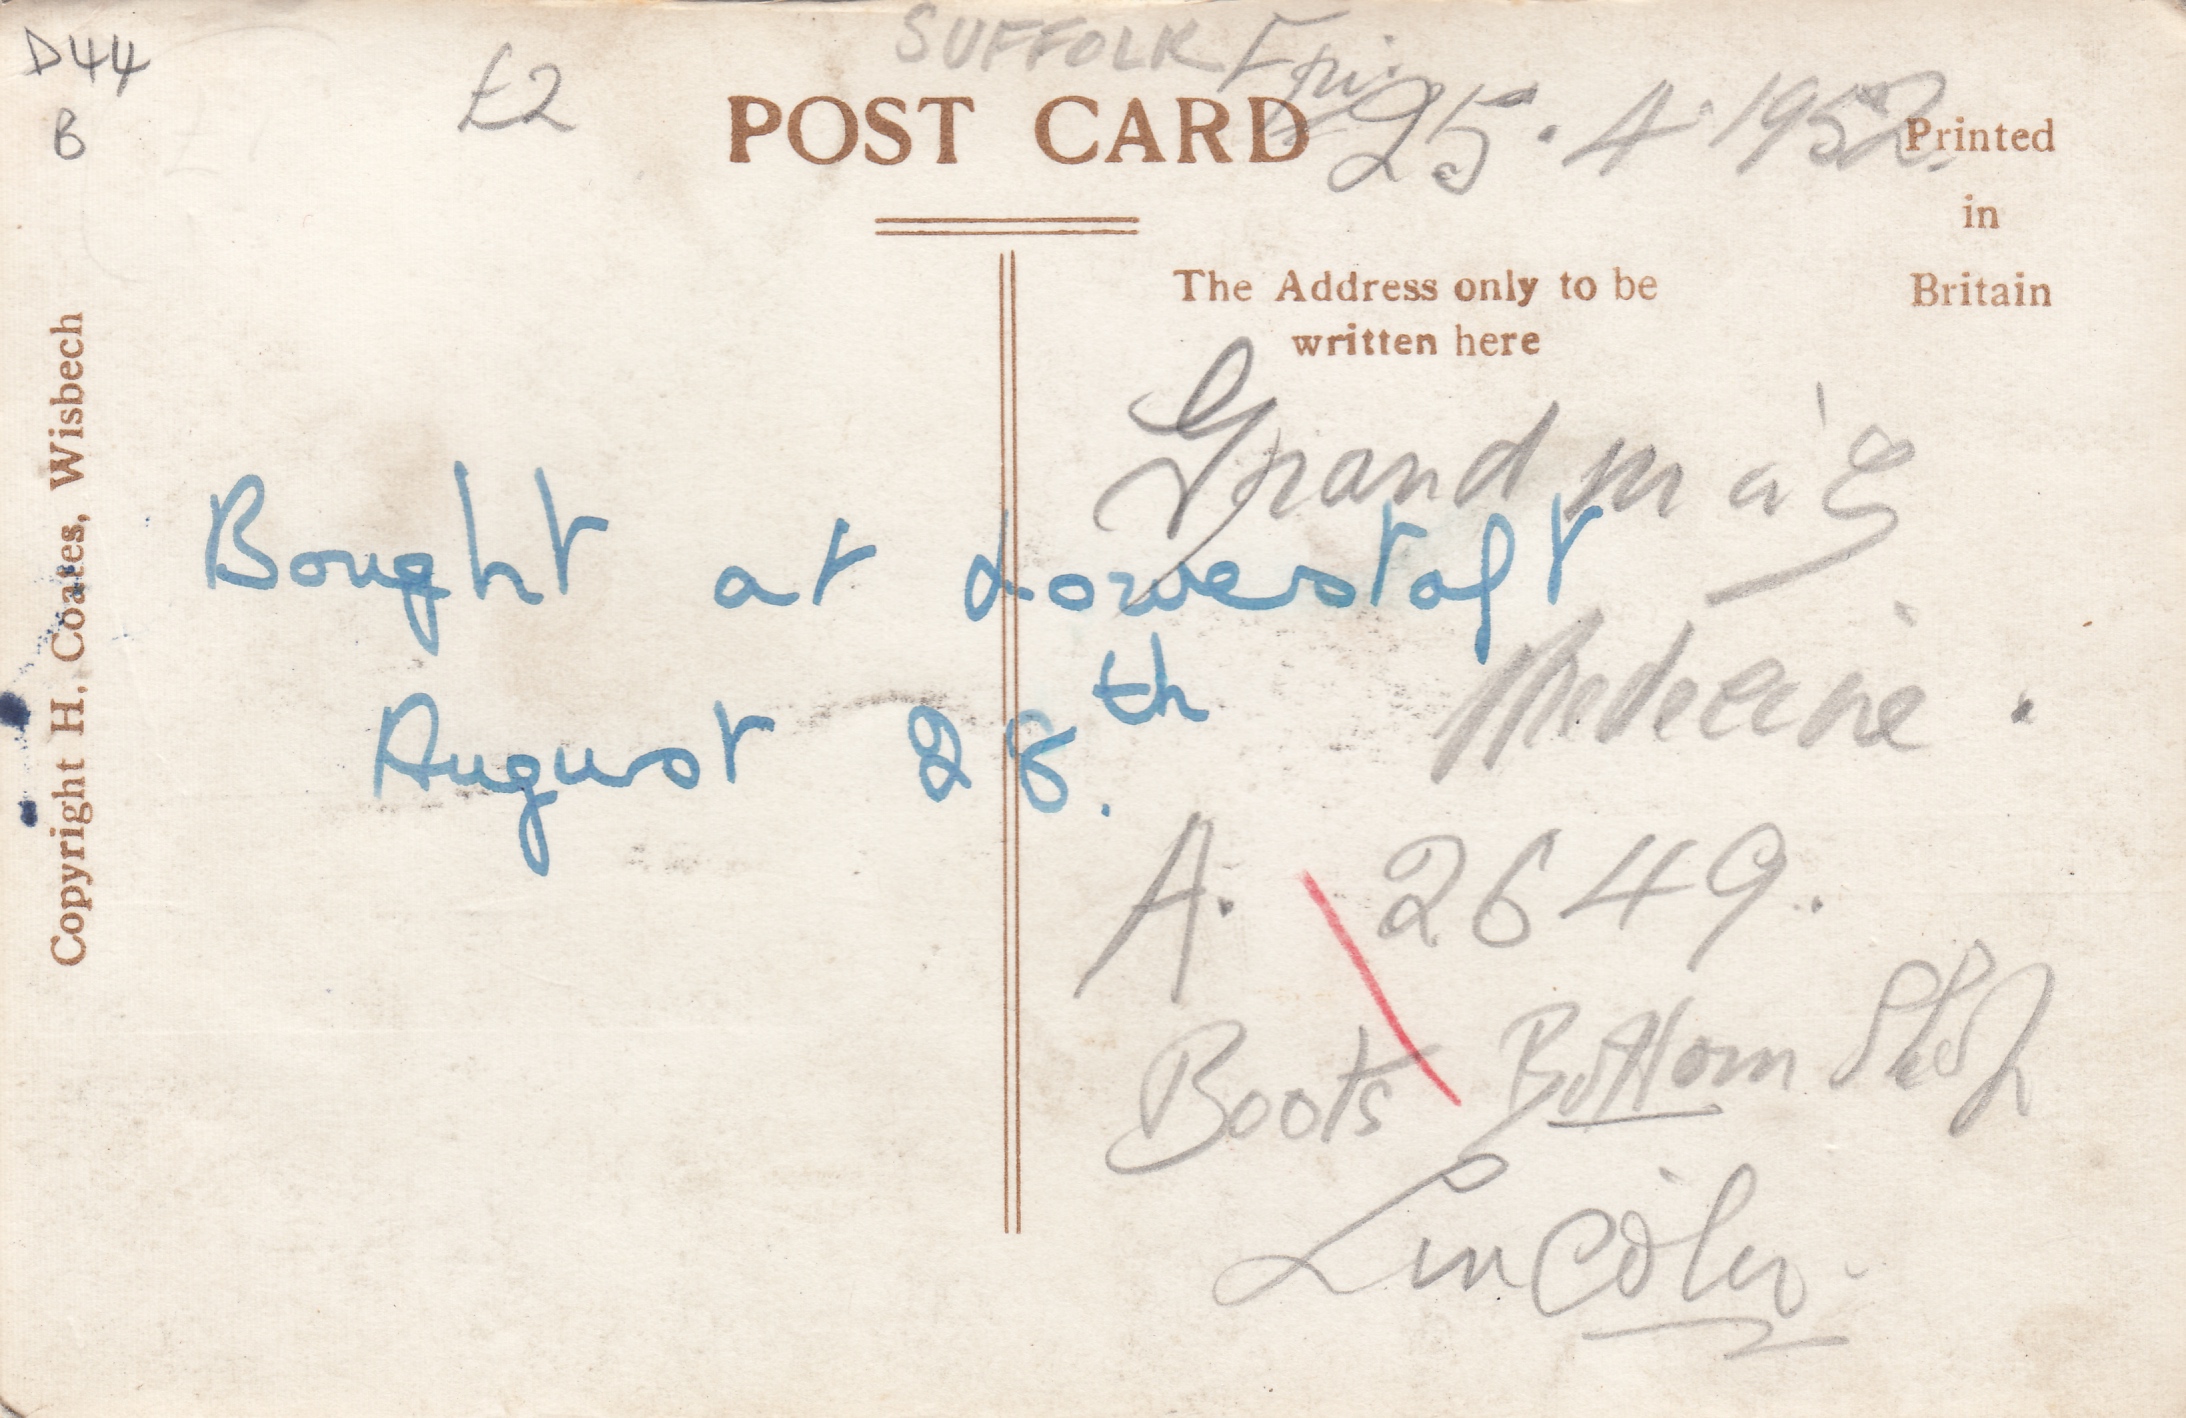 D44
B
£2
SUFFOLK
Fri. 25.4.1952.
POST CARD
Printed
in
Britain
The Address only to be
written here
Copyright H. Coates, Wisbech
Bought at Lowestoft
August 28th.
Grandma's
Medecine.
A. 2649.
Boots Bottom
Lincoln.